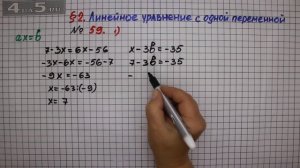 4а5.ru
§2. Линейное уравнение с одной переменной
№ 59. 1)
ax=b
7-3x=6x-56
-3x-6x=-56-7
-9x=-63
x=-63:(-9)
x=7
x-3b=-35
7-3b=-35
-